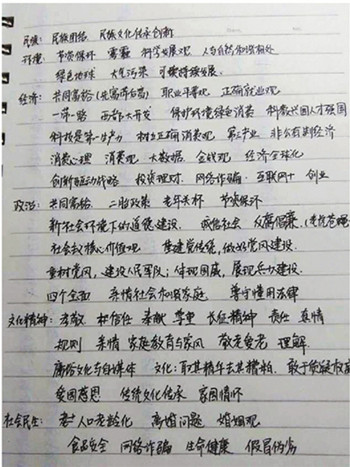 民族：民族团结 民族文化传承创新
环境：节资保环 雾霾 科学发展观 人与自然和谐相处
绿色地球 大气污染 可持续发展
经济：共同富裕 职业平等观 正确就业观
一带一路 西部大开发 保护环境绿色消费 科教兴国人才强国
科技是第一生产力 树立正确消费观 第三产业 非公有制经济
消费心理 消费观 大数据 金钱观 经济全球化
创新驱动战略 投资理财 网络诈骗 互联网+ 创业
政治：共同富裕 二胎政策 老年关怀 节资保环
新社会环境下的道德建设 诚信社会 反腐倡廉
社会主义核心价值观 党建党风建设
党树党风，建设人民军队，体现国威，展现兵力建设
四个全面 亲情社会和谐家庭 尊守懂用法律
文化精神：孝敬 相信任 奉献 长征精神 责任 真情
规则 亲情 家庭教育与家风 敬老爱老 理解
庸俗文化与自媒体 文化：取其精华去其糟粕 敢于质疑权威
爱国感恩 传统文化传承 家国情怀
社会民生：人口老龄化 离婚问题 婚姻观
食品安全 网络诈骗 生命健康 假冒伪劣